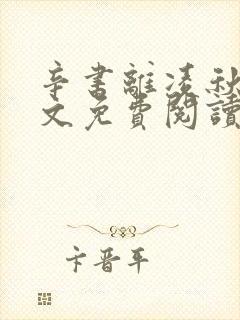 辛書離凌秋
文免費閱讀
卞晋平